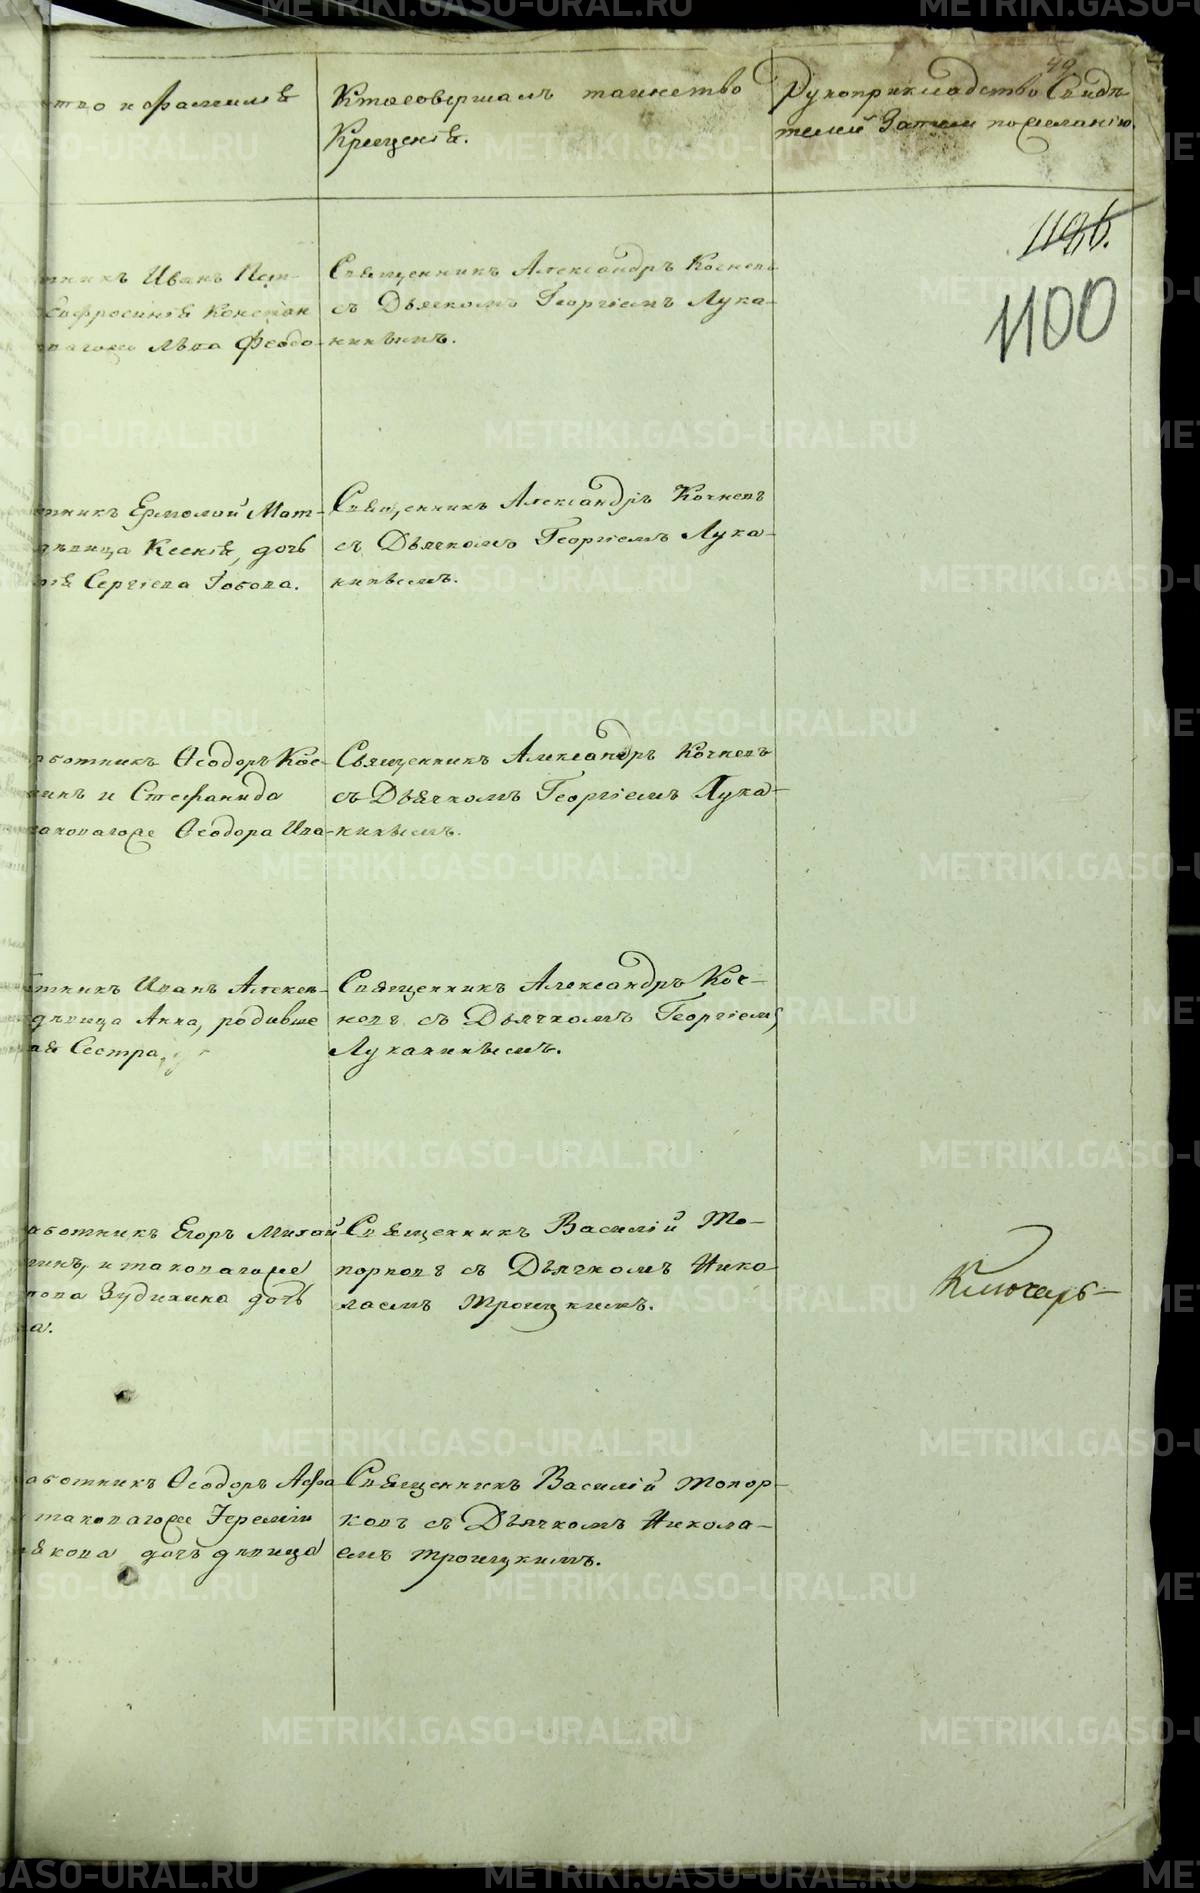 49
ство и Фамилія
Кто совершалъ таинство
Крещенія.
Рукоприкладство Свидѣ-
телей Записи по желанію.
1186.
1100
тникъ Иванъ Пет-
Евфросинія Констан
Льва Феодо-
Священникъ Александръ Кочневъ
съ Дьячкомъ Георгіемъ Лука-
нинымъ.
тникъ Ермолай Мат-
дѣвица Ксенія, дочь
Сергіева
Священникъ Александръ Кочневъ
съ Дьячкомъ Георгіемъ Лука-
нинымъ.
аботникъ Ѳеодоръ Кос-
инъ и Стефанида
таковагоже Ѳеодора Ива-
Священникъ Александръ Кочневъ
съ Дьячкомъ Георгіемъ Лука-
нинымъ.
тникъ Иванъ Алексѣ-
дѣвица Анна, родивше
ая Сестра,
Священникъ Александръ Коч-
невъ съ Дьячкомъ Георгіемъ
Луканинымъ.
аботникъ Егоръ Михай
инъ, и таковагоже
пова Зудихина дочь
а.
Священникъ Василій То-
порковъ съ Дьячкомъ Нико
лаемъ Троицкимъ.
Ключарь
аботникъ Ѳеодоръ Афа
таковагоже Іереміи
якова дочь дѣвица
Священникъ Василій Топор-
ковъ съ Дьячкомъ Никола-
емъ Троицкимъ.
METRIKI.GASO-URAL.RU